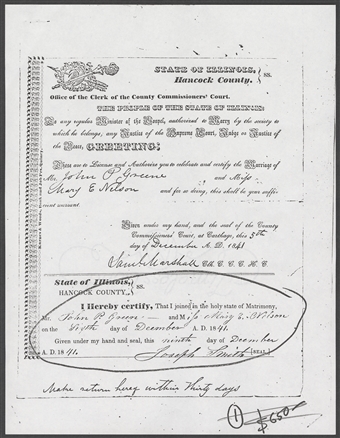 STATE OF ILLINOIS,
Hancock County. } SS.
Office of the Clerk of the County Commissioners' Court.
THE PEOPLE OF THE STATE OF ILLINOIS:
To any regular Minister of the Gospel, authorized to Marry by the society to
which he belongs, any Justice of the Supreme Court, Judge or Justice of
the Peace, GREETING:
These are to License and Authorize you to celebrate and certify the Marriage of
Mr. John P Greene and Miss
Mary E Nelson and for so doing, this shall be your suffi-
cient warrant.
Given under my hand, and the seal of the County
Commissioners' Court, at Carthage, this 5th
day of December A. D. 1841
Saml. Marshall Clk. C. C. C. H. C.
State of Illinois,
HANCOCK COUNTY, } SS.
I Hereby certify, That I joined in the holy state of Matrimony,
Mr. John P. Greene and Miss Mary E. Nelson
on the Sixth day of December A. D. 1841.
Given under my hand and seal, this ninth day of December
A. D. 1841. Joseph Smith [SEAL.]
Make return hereof within Thirty days
1 $650